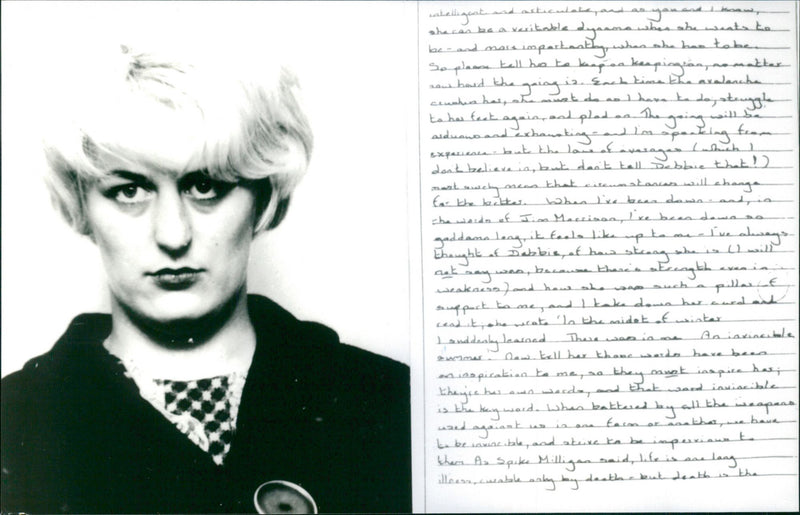 intelligent and articulate, and as you and I know,
she can be a veritable dynamo when she wants to
be - and more importantly, when she has to be.
So please tell her to keep on keeping on, no matter
how hard the going is. Each time the avalanche
crushes her, she must do as I have to do, struggle
to her feet again, and plod on. The going will be
arduous and exhausting - and I'm speaking from
experience - but the law of averages (which I
don't believe in, but don't tell Debbie that!)
must surely mean that circumstances will change
for the better. When I've been down - and, in
the words of Jim Morrison, I've been down so
goddamn long, it feels like up to me - I've always
thought of Debbie, of how strong she is (I will
not say was, because there's strength even in
weakness) and how she was such a pillar of
support to me, and I take down her card and
read it, she wrote 'In the midst of winter
I suddenly learned There was in me An invincible
summer. Now tell her those words have been
an inspiration to me, so they must inspire her;
they're her own words, and that word invincible
is the key word. When battered by all the weapons
used against us in one form or another, we have
to be invincible, and strive to be impervious to
them. As Spike Milligan said, life is one long
illness, curable only by death - but death is the